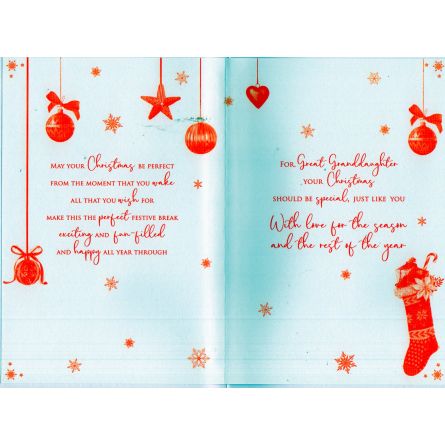 MAY YOUR Christmas BE PERFECT
FROM THE MOMENT THAT YOU wake
ALL THAT YOU wish FOR
MAKE THIS THE perfect FESTIVE BREAK
exciting AND fun-filled
AND happy ALL YEAR THROUGH
FOR Great Granddaughter
YOUR Christmas
SHOULD BE special, JUST LIKE YOU
With love for the season
and the rest of the year